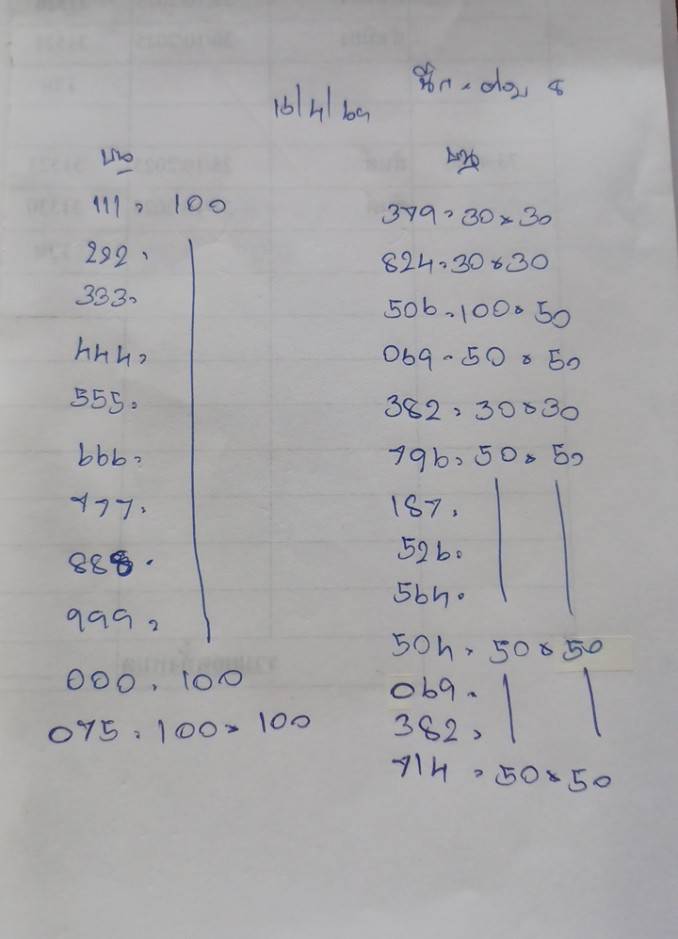 16/4/69
บน
111 = 100
222 =
333 =
444 =
555 =
666 =
777 =
888 =
999 =
000 = 100
075 = 100 × 100
บน
379 = 30 × 30
824 = 30 × 30
506 = 100 × 50
069 = 50 × 50
382 = 30 × 30
796 = 50 × 50
187 =
526 =
564 =
504 = 50 × 50
069 =
382 =
714 = 50 × 50